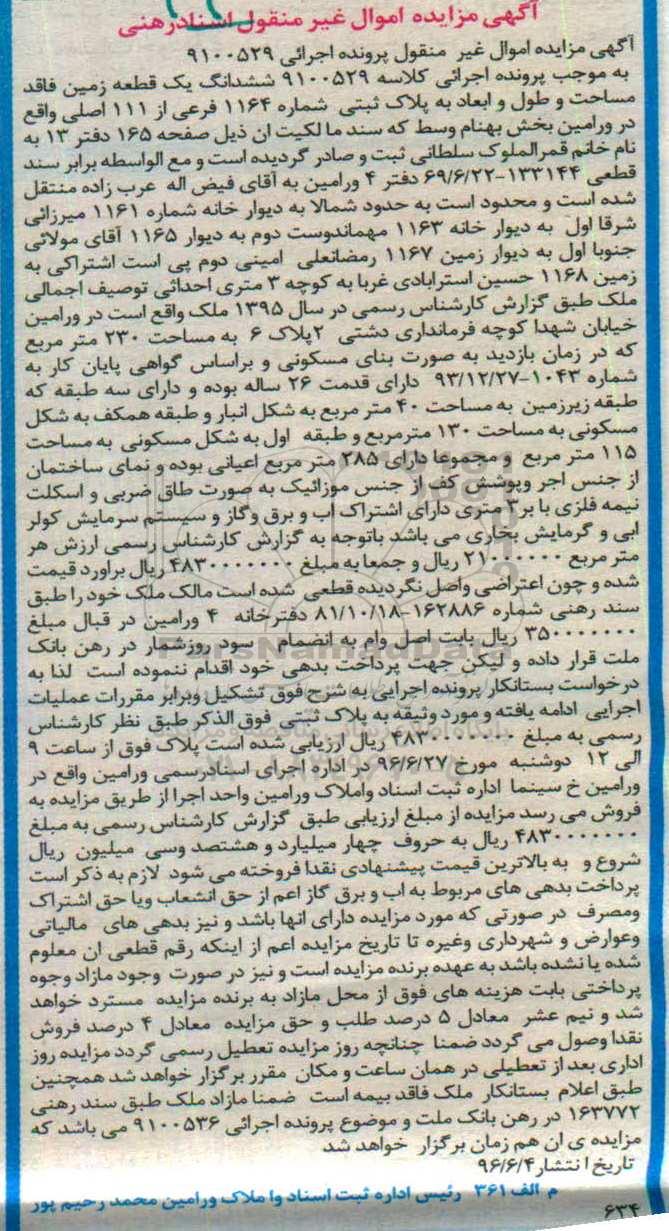 آگهی مزایده اموال غیر منقول اسنادرهنی
آگهی مزایده اموال غیر منقول پرونده اجرائی ۹۱۰۰۵۲۹
به موجب پرونده اجرائی کلاسه ۹۱۰۰۵۲۹ ششدانگ یک قطعه زمین فاقد
مساحت و طول و ابعاد به پلاک ثبتی شماره ۱۱۶۴ فرعی از ۱۱۱ اصلی واقع
در ورامین بخش بهنام وسط که سند مالکیت ان ذیل صفحه ۱۶۵ دفتر ۱۳ به
نام خانم قمرالملوک سلطانی ثبت و صادر گردیده است و مع الواسطه برابر سند
قطعی ۱۳۳۱۴۴-۶۹/۶/۲۲ دفتر ۴ ورامین به آقای فیض اله عرب زاده منتقل
شده است و محدود است به حدود شمالا به دیوار خانه شماره ۱۱۶۱ میرزائی
شرقا اول به دیوار خانه ۱۱۶۳ مهماندوست دوم به دیوار ۱۱۶۵ آقای مولائی
جنوبا اول به دیوار زمین ۱۱۶۷ رمضانعلی امینی دوم پی است اشتراکی به
زمین ۱۱۶۸ حسین استرابادی غربا به کوچه ۳ متری احداثی توصیف اجمالی
ملک طبق گزارش کارشناس رسمی در سال ۱۳۹۵ ملک واقع است در ورامین
خیابان شهدا کوچه فرمانداری دشتی ۲پلاک ۶ به مساحت ۲۳۰ متر مربع
که در زمان بازدید به صورت بنای مسکونی و براساس گواهی پایان کار به
شماره ۱۰۴۳-۹۳/۱۲/۲۷ دارای قدمت ۲۶ ساله بوده و دارای سه طبقه که
طبقه زیرزمین به مساحت ۴۰ متر مربع به شکل انبار و طبقه همکف به شکل
مسکونی به مساحت ۱۳۰ مترمربع و طبقه اول به شکل مسکونی به مساحت
۱۱۵ متر مربع و مجموعا دارای ۲۸۵ متر مربع اعیانی بوده و نمای ساختمان
از جنس اجر وپوشش کف از جنس موزائیک به صورت طاق ضربی و اسکلت
نیمه فلزی با بر۳ متری دارای اشتراک اب و برق وگاز و سیستم سرمایش کولر
ابی و گرمایش بخاری می باشد باتوجه به گزارش کارشناس رسمی ارزش هر
متر مربع ۲۱۰۰۰۰۰۰ ریال و جمعا به مبلغ ۴۸۳۰۰۰۰۰۰۰ ریال براورد قیمت
شده و چون اعتراضی واصل نگردیده قطعی شده است مالک ملک خود را طبق
سند رهنی شماره ۱۶۲۸۸۶-۸۱/۱۰/۱۸ دفترخانه ۴ ورامین در قبال مبلغ
۳۵۰۰۰۰۰۰۰ ریال بابت اصل وام به انضمام سود روزشمار در رهن بانک
ملت قرار داده و لیکن جهت پرداخت بدهی خود اقدام ننموده است لذا به
درخواست بستانکار پرونده اجرایی به شرح فوق تشکیل وبرابر مقررات عملیات
اجرایی ادامه یافته و مورد وثیقه به پلاک ثبتی فوق الذکر طبق نظر کارشناس
رسمی به مبلغ ۴۸۳۰۰۰۰۰۰۰ ریال ارزیابی شده است پلاک فوق از ساعت ۹
الی ۱۲ دوشنبه مورخ ۹۶/۶/۲۷ در اداره اجرای اسنادرسمی ورامین واقع در
ورامین خ سینما اداره ثبت اسناد واملاک ورامین واحد اجرا از طریق مزایده به
فروش می رسد مزایده از مبلغ ارزیابی طبق گزارش کارشناس رسمی به مبلغ
۴۸۳۰۰۰۰۰۰۰ ریال به حروف چهار میلیارد و هشتصد وسی میلیون ریال
شروع و به بالاترین قیمت پیشنهادی نقدا فروخته می شود لازم به ذکر است
پرداخت بدهی های مربوط به اب و برق گاز اعم از حق انشعاب ویا حق اشتراک
ومصرف در صورتی که مورد مزایده دارای انها باشد و نیز بدهی های مالیاتی
وعوارض و شهرداری وغیره تا تاریخ مزایده اعم از اینکه رقم قطعی ان معلوم
شده یا نشده باشد به عهده برنده مزایده است و نیز در صورت وجود مازاد وجوه
پرداختی بابت هزینه های فوق از محل مازاد به برنده مزایده مسترد خواهد
شد و نیم عشر معادل ۵ درصد طلب و حق مزایده معادل ۴ درصد فروش
نقدا وصول می گردد ضمنا چنانچه روز مزایده تعطیل رسمی گردد مزایده روز
اداری بعد از تعطیلی در همان ساعت و مکان مقرر برگزار خواهد شد همچنین
طبق اعلام بستانکار ملک فاقد بیمه است ضمنا مازاد ملک طبق سند رهنی
۱۶۳۷۷۲ در رهن بانک ملت و موضوع پرونده اجرائی ۹۱۰۰۵۳۶ می باشد که
مزایده ی ان هم زمان برگزار خواهد شد
تاریخ انتشار۹۶/۶/۴
م الف ۳۶۱ رئیس اداره ثبت اسناد واملاک ورامین محمد رحیم پور
۶۳۴
ParsNamadData